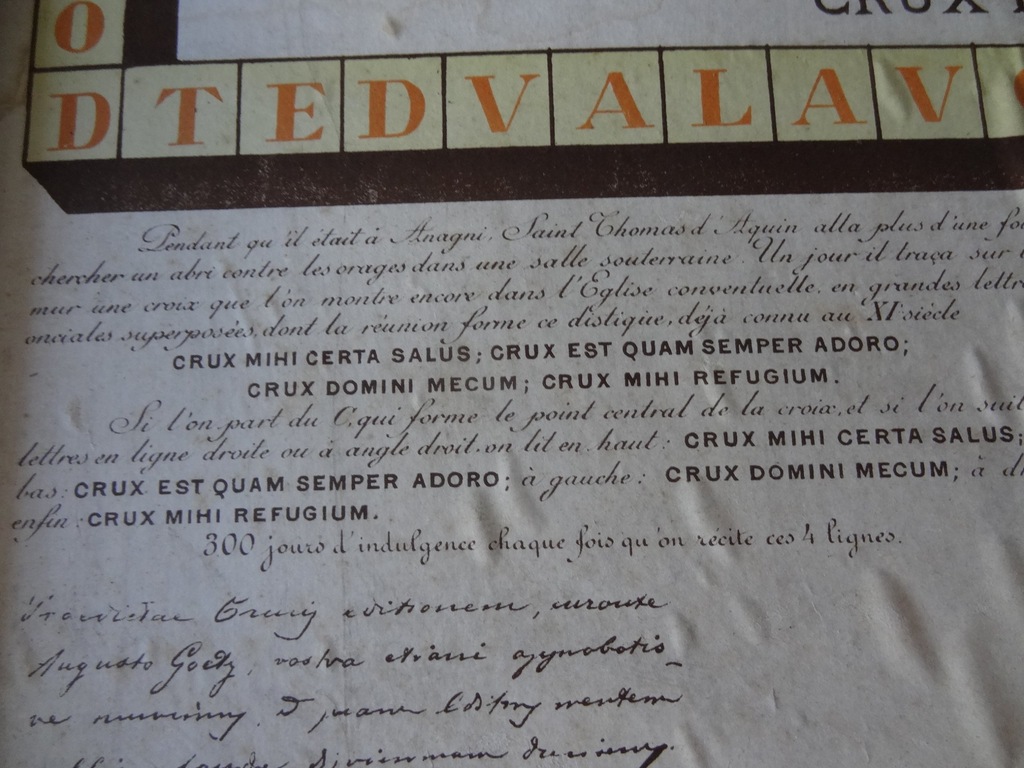 CRUX
O
D T E D V A L A V
Pendant qu'il était à Anagni, Saint Thomas d'Aquin alla plus d'une
chercher un abri contre les orages dans une salle souterraine. Un jour il traça sur
mur une croix que l'on montre encore dans l'Eglise conventuelle, en grandes
onciales superposées, dont la réunion forme ce distique, déjà connu au XIe siècle
CRUX MIHI CERTA SALUS; CRUX EST QUAM SEMPER ADORO;
CRUX DOMINI MECUM; CRUX MIHI REFUGIUM.
Si l'on part du C, qui forme le point central de la croix, et si l'on suit
lettres en ligne droite ou à angle droit, on lit en haut: CRUX MIHI CERTA SALUS;
bas: CRUX EST QUAM SEMPER ADORO; à gauche: CRUX DOMINI MECUM; à
enfin: CRUX MIHI REFUGIUM.
300 jours d'indulgence chaque fois qu'on récite ces 4 lignes.
Crucis editionem,
Augusto Goetz,
mentem